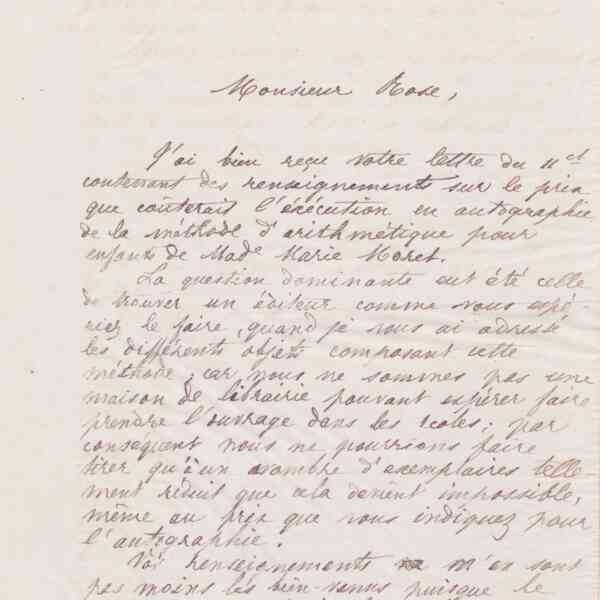 Monsieur Rose,
J'ai bien reçu votre lettre du 11 ct
contenant des renseignements sur le prix
que coûterait l'exécution en autographie
de la méthode d'arithmétique pour
enfants de Made Marie Moret.
La question dominante eut été celle
de trouver un éditeur comme vous espé-
riez le faire, quand je vous ai adressé
les différents objets composant cette
méthode; car nous ne sommes pas une
maison de librairie pouvant espérer faire
prendre l'ouvrage dans les écoles; par
conséquent nous ne pourrions faire
tirer qu'à un nombre d'exemplaires telle
ment réduit que cela devient impossible,
même au prix que vous indiquez pour
l'autographie.
Vos renseignements ne m'en sont
pas moins les bien-venus puisque le